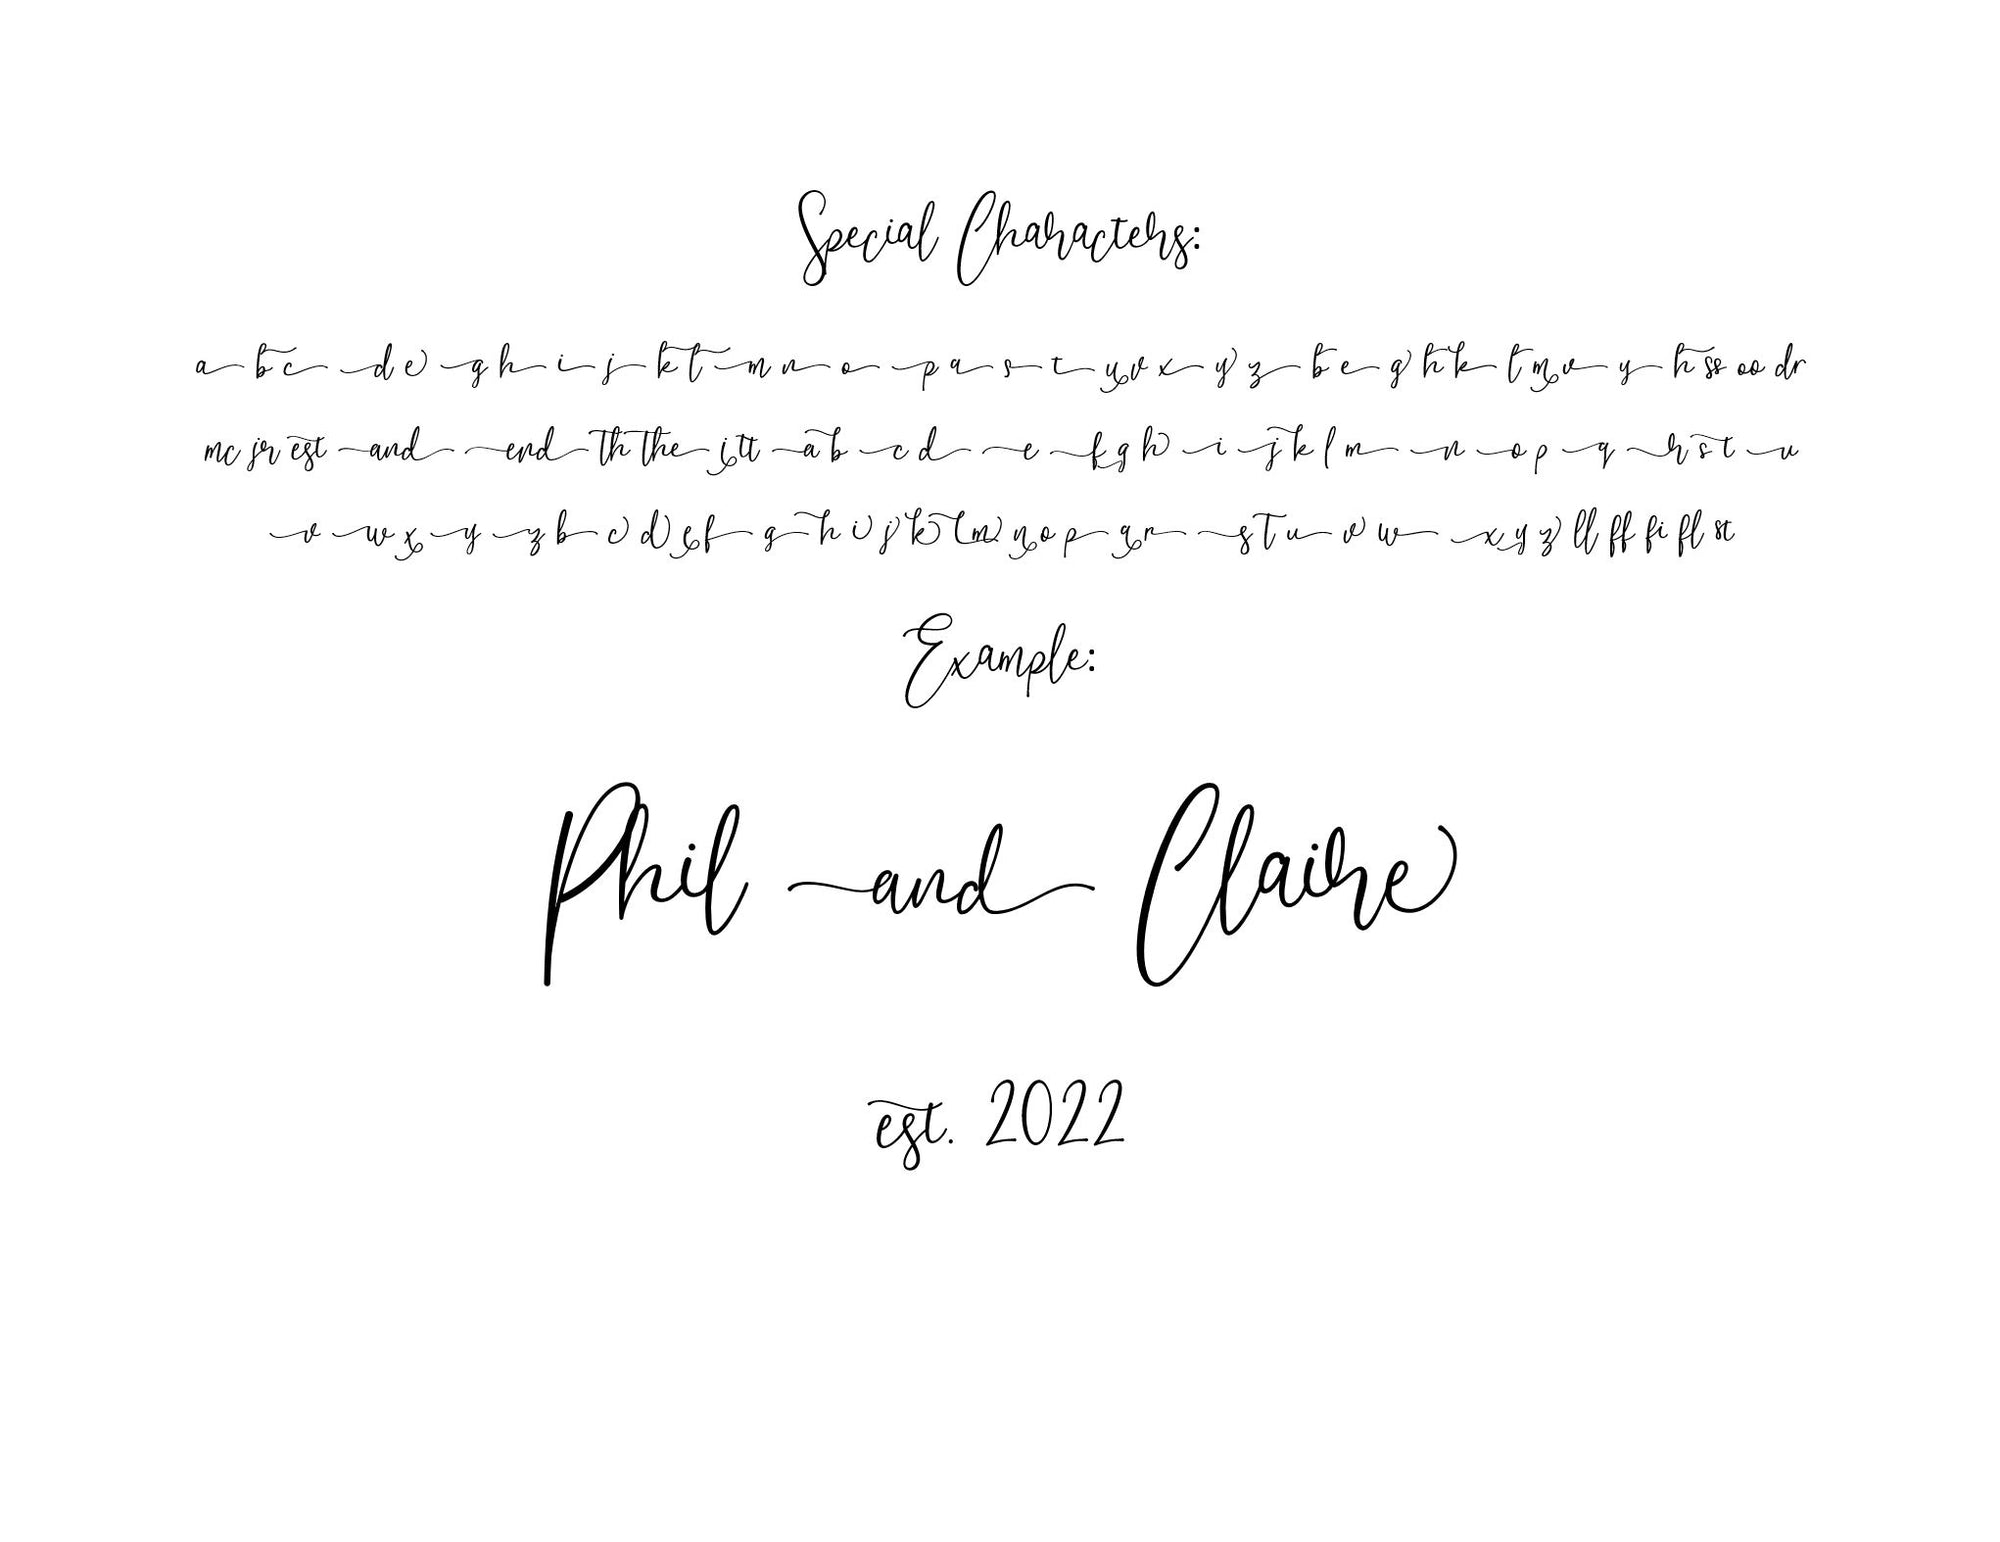 Special Characters:
a b c d e g h i j k t m n o p a s t y v x y z b e g h k h k t m v y h ss oo dr
mc jr est and end th the j tt a b c d e f g h i j k l m n o p q r s t u
v w x y z b c d e f g h i j k l m n o p q r s t u v w x y z ll ff fi fl st
Example:
Phil and Claire
est. 2022